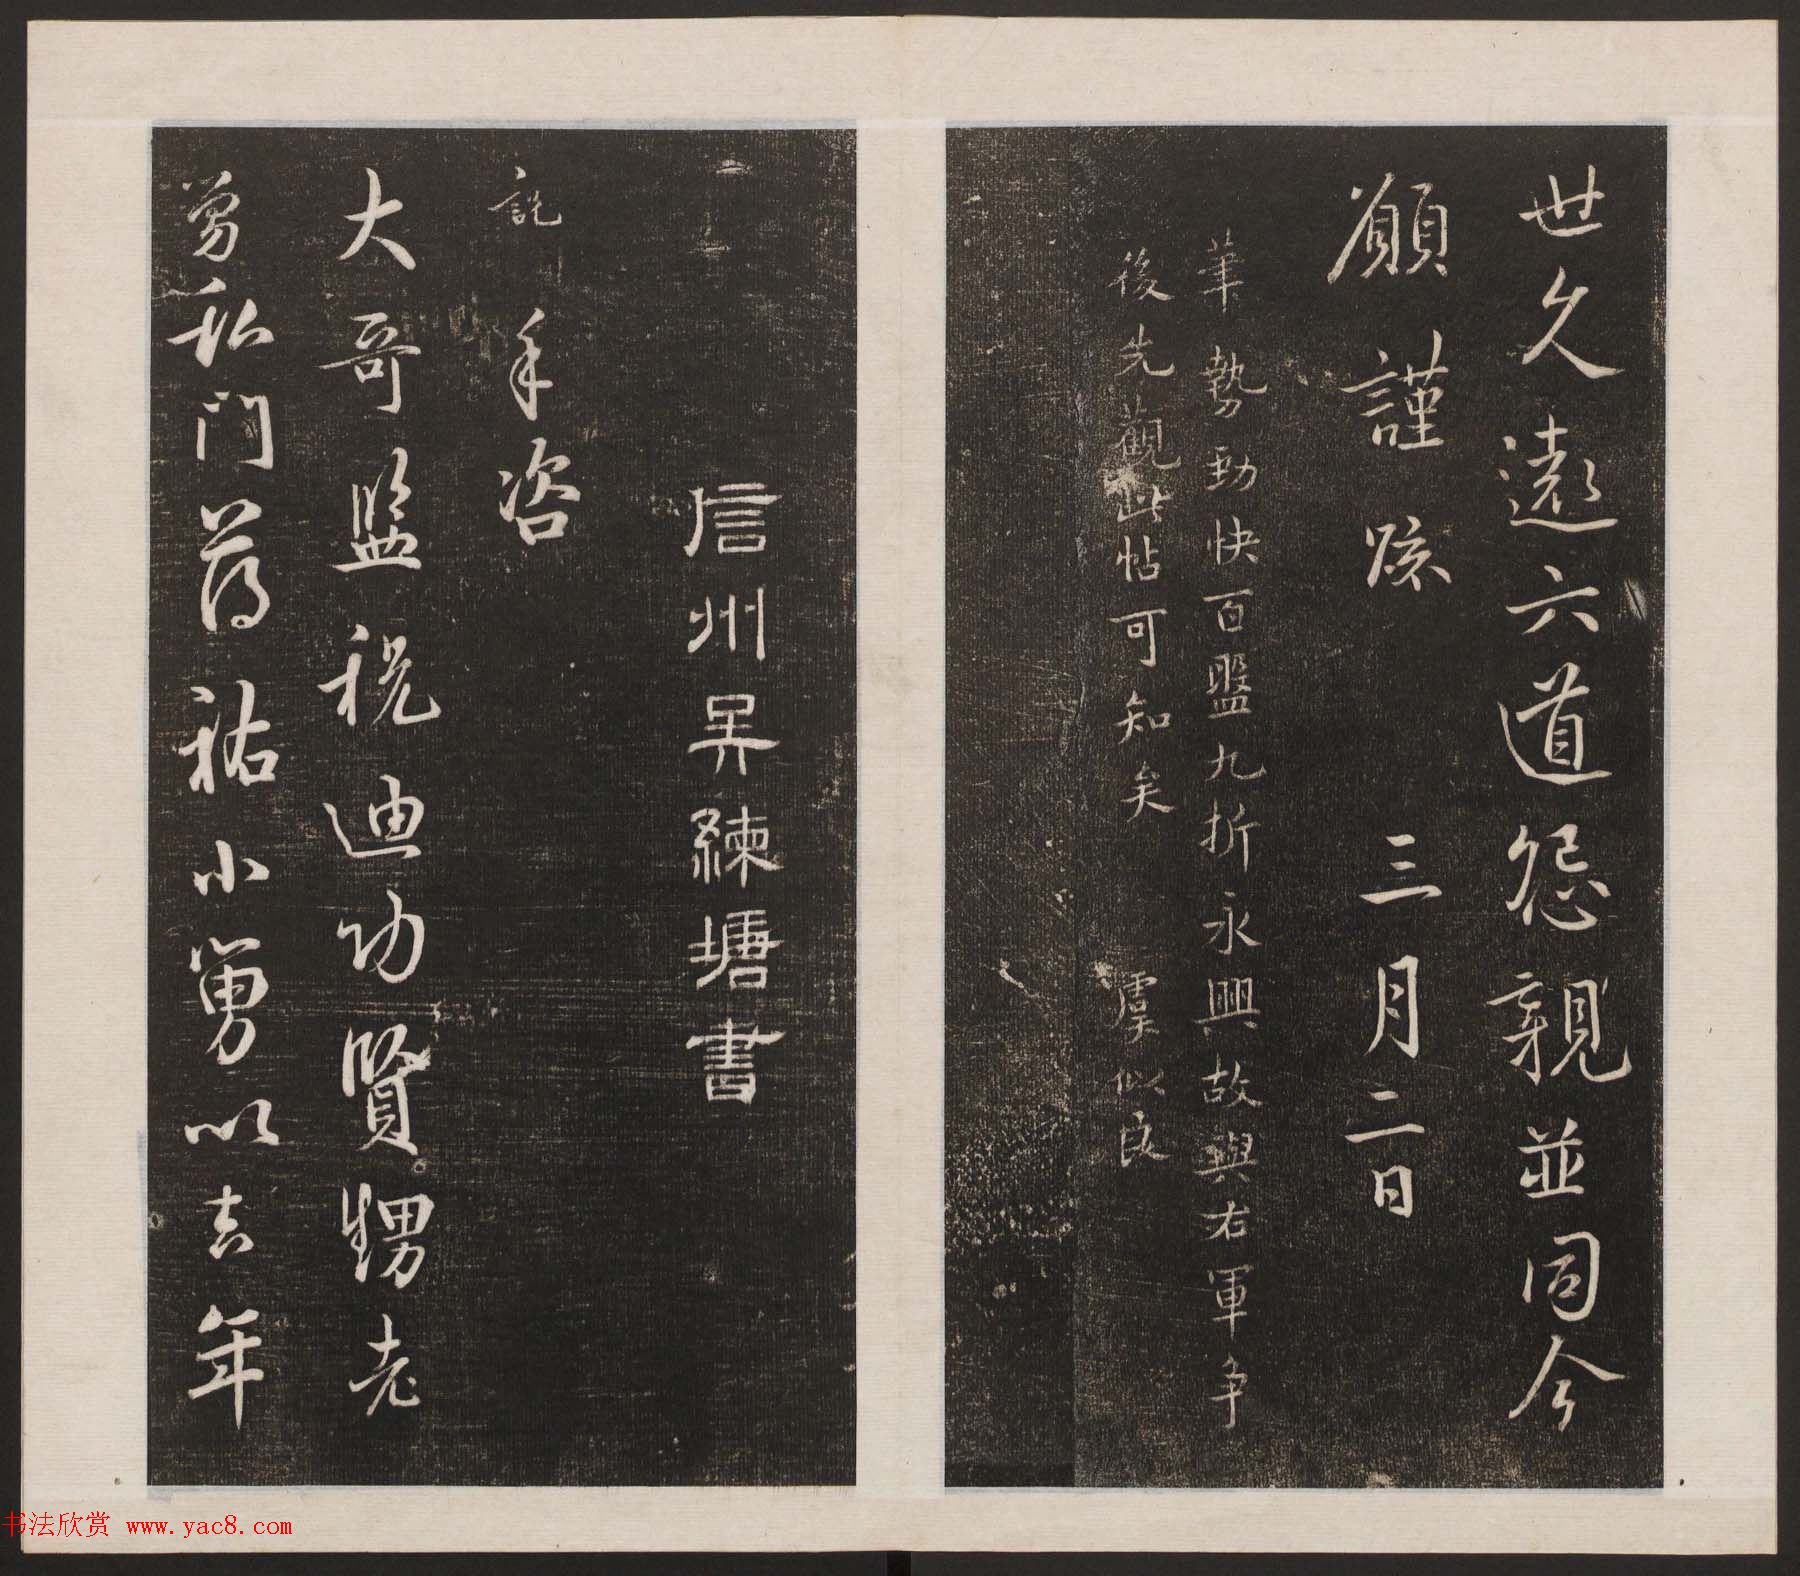 世久遠六道怨親並同今
願謹疏　三月二日
筆勢勁快百盤九折永興故與右軍争
後先觀此帖可知矣　虞似良
信州吴練塘書
説手咨
大哥監税迪功賢甥老
舅私門荐祐小舅以去年
书法欣赏 www.yac8.com